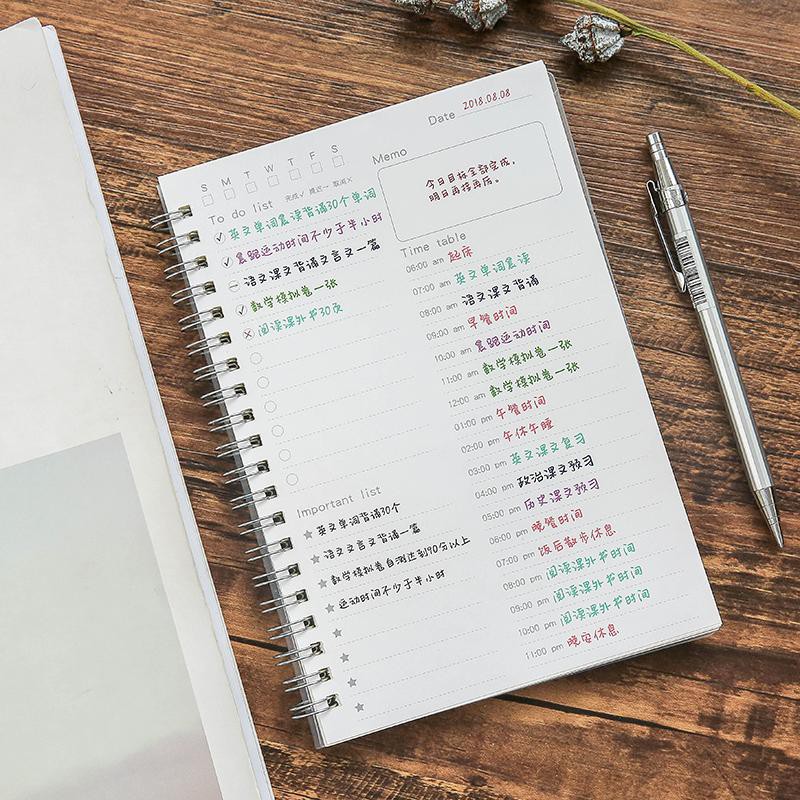 Date 2018.08.08
S M T W T F S
完成✓ 推迟→ 取消×
Memo
今日目标全部完成,
明日再接再厉。
To do list
英文单词晨读背诵30个单词
晨跑运动时间不少于半小时
语文课文背诵文言文一篇
数学模拟卷一张
阅读课外书30页
Important list
英文单词背诵30个
语文文言文背诵一篇
数学模拟卷自测达到90分以上
运动时间不少于半小时
Time table
06:00 am 起床
07:00 am 英文单词晨读
08:00 am 语文课文背诵
09:00 am 早餐时间
10:00 am 晨跑运动时间
11:00 am 数学模拟卷一张
12:00 am 数学模拟卷一张
01:00 pm 午餐时间
02:00 pm 午休午睡
03:00 pm 英文课文复习
04:00 pm 政治课文预习
05:00 pm 历史课文预习
06:00 pm 晚餐时间
07:00 pm 饭后散步休息
08:00 pm 阅读课外书时间
09:00 pm 阅读课外书时间
10:00 pm 阅读课外书时间
11:00 pm 晚安休息